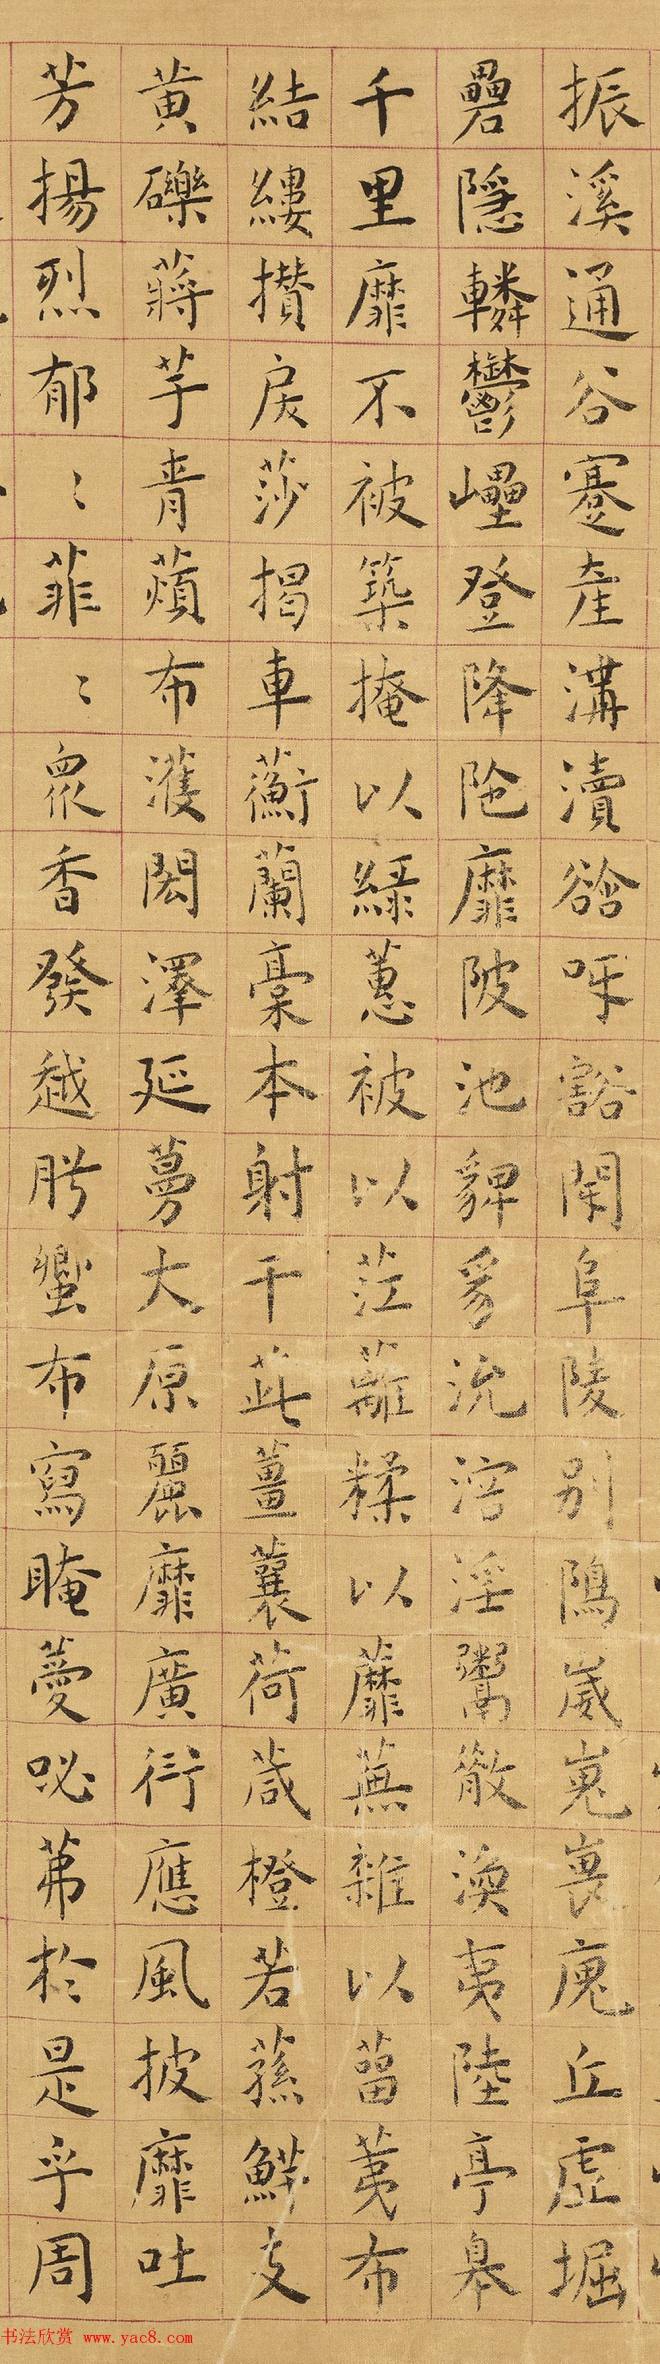 振溪通谷蹇產溝瀆谽呀豁閑阜陵別隝崴嵬㠢廆丘虛堀
礨隱轔鬱㠥登降阤靡陂池貏豸沇溶淫鬻散渙夷陸亭皋
千里靡不被築掩以綠蕙被以茳蘺糅以蘪蕪雜以菑荑布
結縷攢戾莎揭車蘅蘭槀本射干茈薑蘘荷葴橙若蓀鮮支
黃礫蔣芧青薠布濩閎澤延蔓大原麗靡廣衍應風披靡吐
芳揚烈郁〻菲〻眾香發越肸蠁布寫晻薆咇茀於是乎周
书法欣赏 www.yac8.com